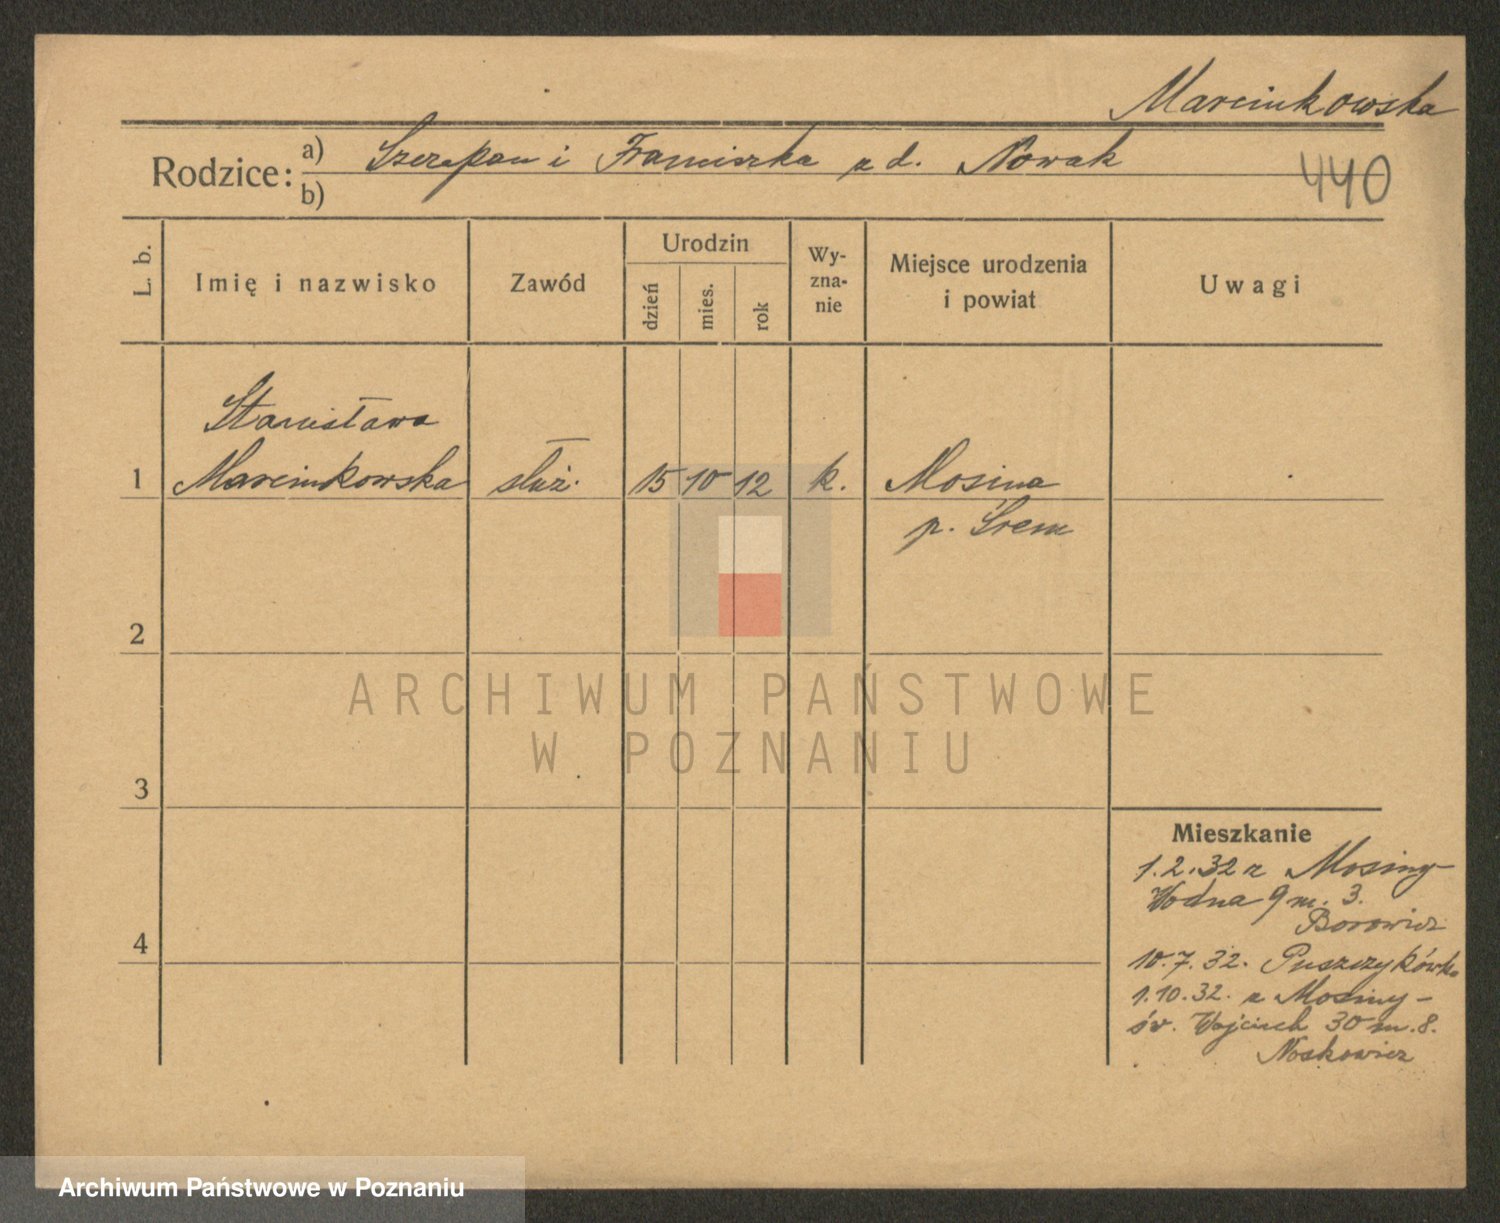 Marcinkowska
Rodzice: a) Szczepan i Franciszka z d. Nowak
b)
440
L. b.
Imię i nazwisko
Zawód
Urodzin
dzień
mies.
rok
Wy-
zna-
nie
Miejsce urodzenia
i powiat
Uwagi
Stanisława
1 Marcinkowska służ. 15 10 12 k. Mosina
p. Śrem
2
ARCHIWUM PAŃSTWOWE
W POZNANIU
3
Mieszkanie
1.2.32 z Mosiny
Wodna 9 m. 3.
Borowicz
4
10.7.32. Puszczykówko
1.10.32. z Mosiny –
św. Wojciech 30 m. 8.
Noskowicz
Archiwum Państwowe w Poznaniu